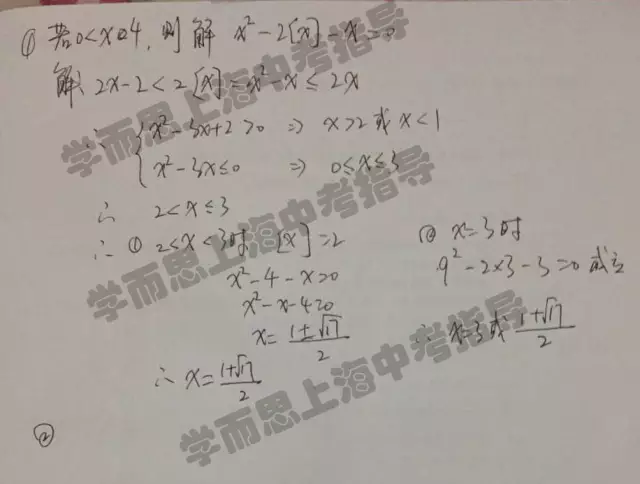 ① 若0<x≤4,则解 x²-2[x]-x=0
解: 2x-2<2[x]=x²-x≤2x
∴ { x²-3x+2>0 ⇒ x>2或x<1
x²-3x≤0 ⇒ 0≤x≤3
∴ 2<x≤3
∴ ① 2<x<3时 [x]=2
x²-4-x=0
x²-x-4=0
x=\frac{1±√17}{2}
∴ x=\frac{1+√17}{2}
② x=3时
9²-2×3-3=0 成立
∴ x=3或\frac{1+√17}{2}
②
学而思上海中考指导
学而思上海中考指导
学而思上海中考指导